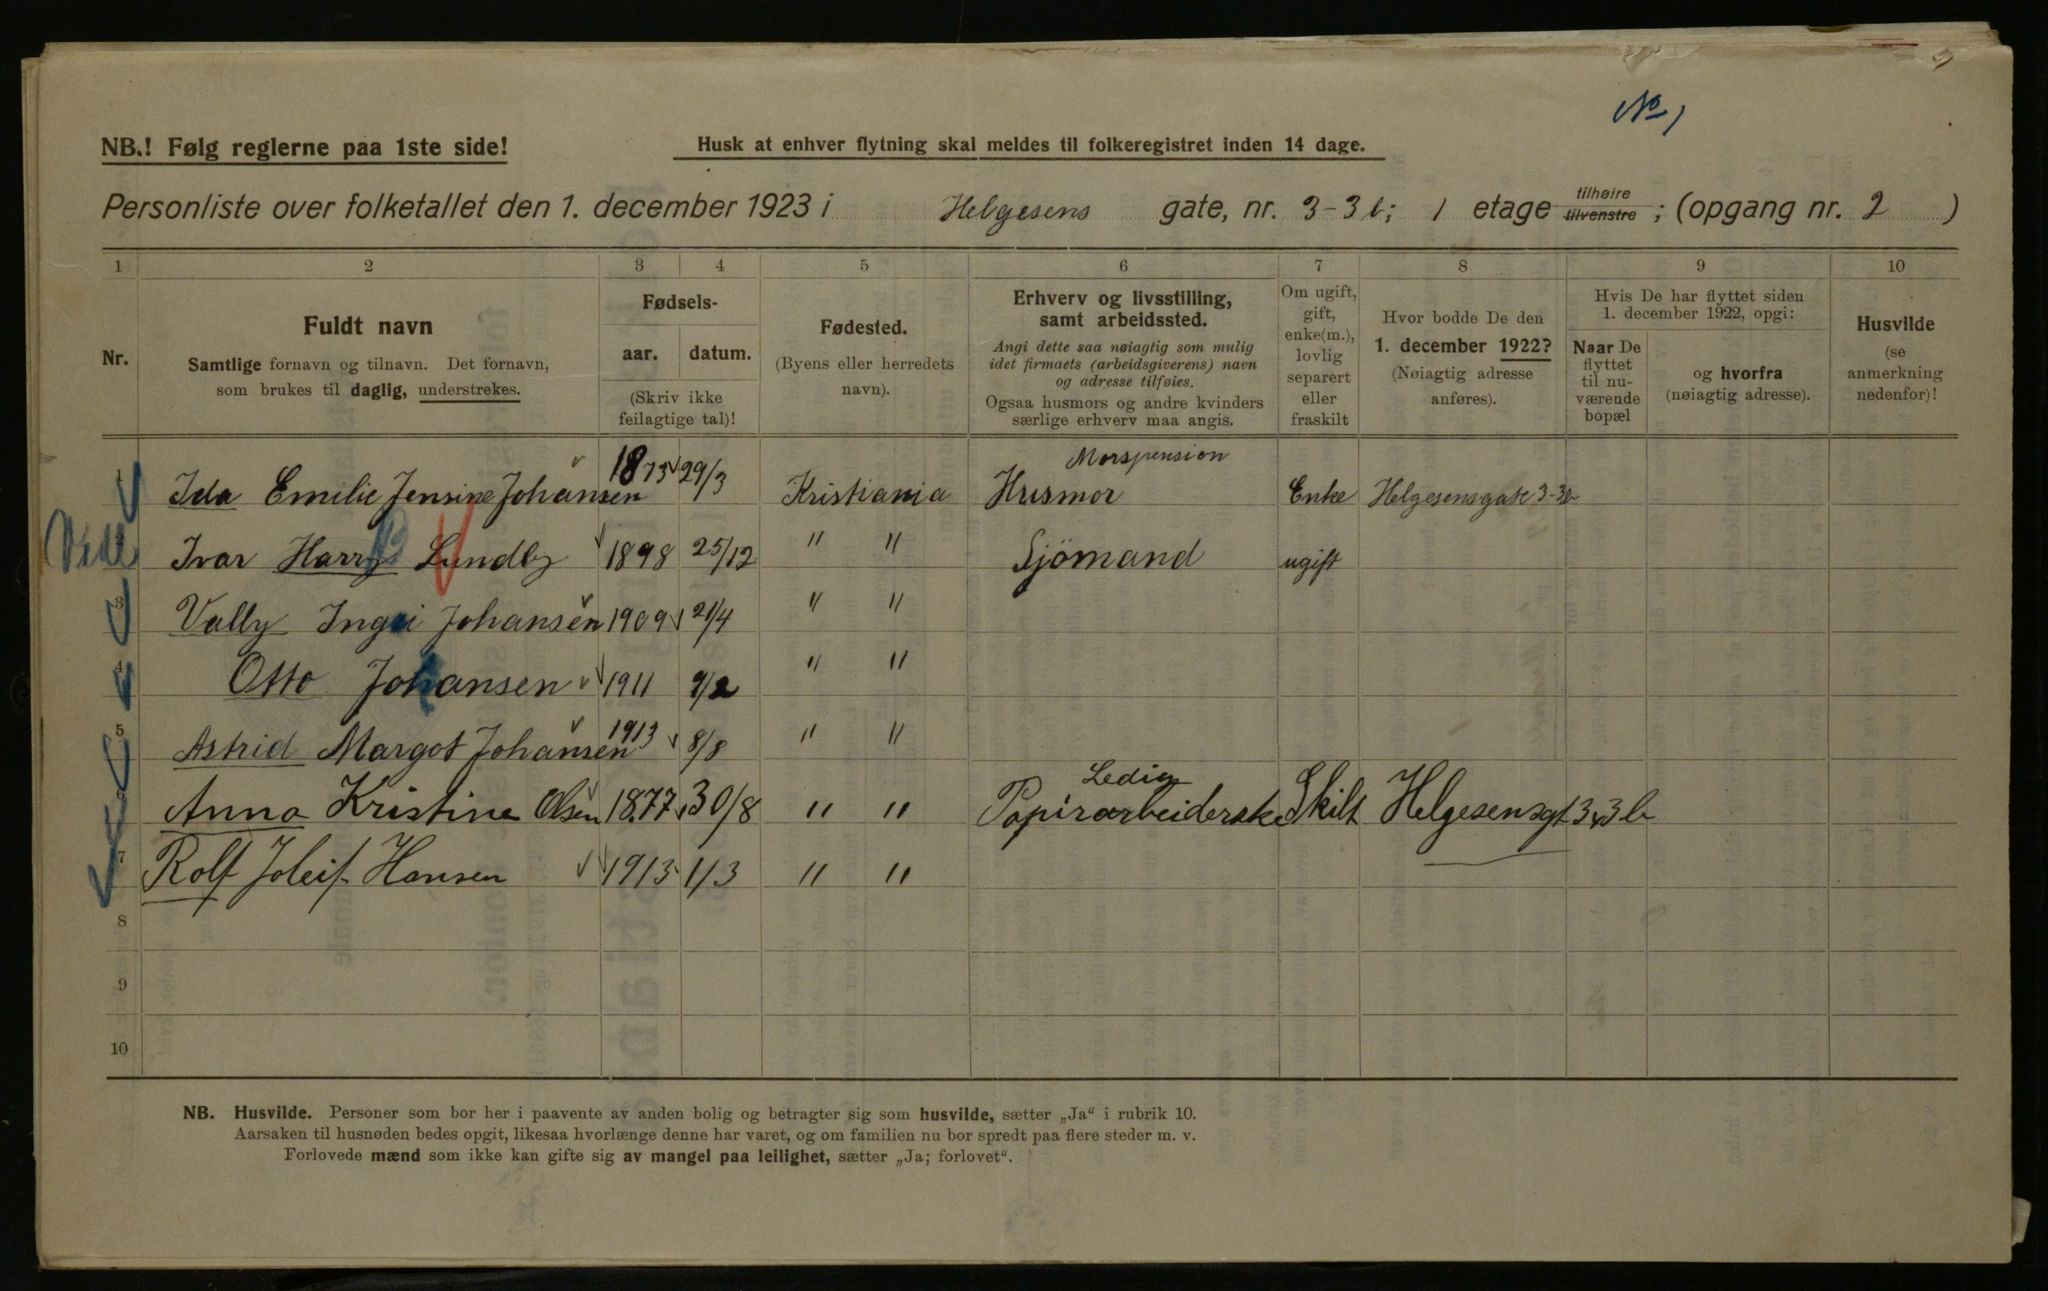 No 1
NB.! Følg reglerne paa 1ste side!
Husk at enhver flytning skal meldes til folkeregistret inden 14 dage.
Personliste over folketallet den 1. december 1923 i Helgesens gate, nr. 3-3b; 1 etage tilhøire tilvenstre ; (opgang nr. 2 )
1 2 3 4 5 6 7 8 9 10
Nr.
Fuldt navn
Samtlige fornavn og tilnavn. Det fornavn,
som brukes til daglig, understrekes.
Fødsels-
aar. datum.
(Skriv ikke
feilagtige tal)!
Fødested.
(Byens eller herredets
navn).
Erhverv og livsstilling,
samt arbeidssted.
Angi dette saa nøiagtig som mulig
idet firmaets (arbeidsgiverens) navn
og adresse tilføies.
Ogsaa husmors og andre kvinders
særlige erhverv maa angis.
Om ugift,
gift,
enke(m.),
lovlig
separert
eller
fraskilt
Hvor bodde De den
1. december 1922?
(Nøiagtig adresse
anføres).
Hvis De har flyttet siden
1. december 1922, opgi:
Naar De
flyttet
til nu-
værende
bopæl
og hvorfra
(nøiagtig adresse).
Husvilde
(se
anmerkning
nedenfor)!
Morspension
1 Ida Emilie Jensine Johansen 1873 29/3 Kristiania Husmor Enke Helgesensgate 3-3b
Ivar Harry Lundby 1898 25/12 " " Sjömand ugift
3 Vally Ingri Johansen 1909 21/4 " "
4 Otto Johansen 1911 9/2 " "
5 Astrid Margot Johansen 1913 8/8 " "
Ledig
6 Anna Kristine Olsen 1877 30/8 " " Papirarbeiderske Skilt Helgesensgt 3 3b
7 Rolf Joleif Hansen 1913 1/3 " "
8
9
10
NB. Husvilde. Personer som bor her i paavente av anden bolig og betragter sig som husvilde, sætter „Ja" i rubrik 10.
Aarsaken til husnøden bedes opgit, likesaa hvorlænge denne har varet, og om familien nu bor spredt paa flere steder m. v.
Forlovede mænd som ikke kan gifte sig av mangel paa leilighet, sætter „Ja; forlovet".